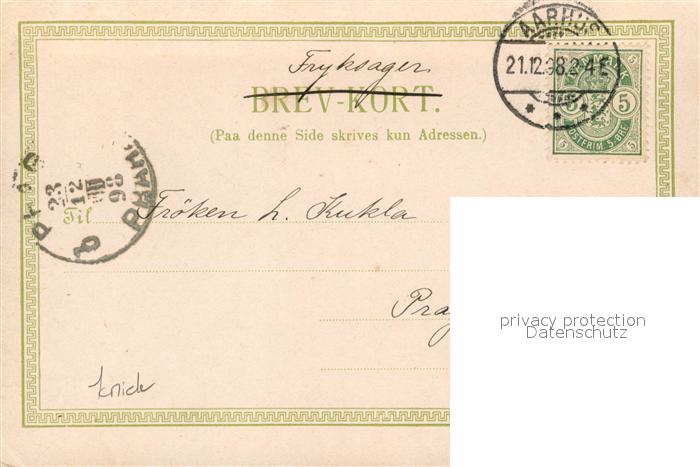 Fryksager
BREV-KORT.
(Paa denne Side skrives kun Adressen.)
AARHUS
21.12.98.3-4E
5 5
POSTFRIM. 5 ØRE
23
12
98
Til Fröken h. Kukla
Pra
knick
privacy protection
Datenschutz